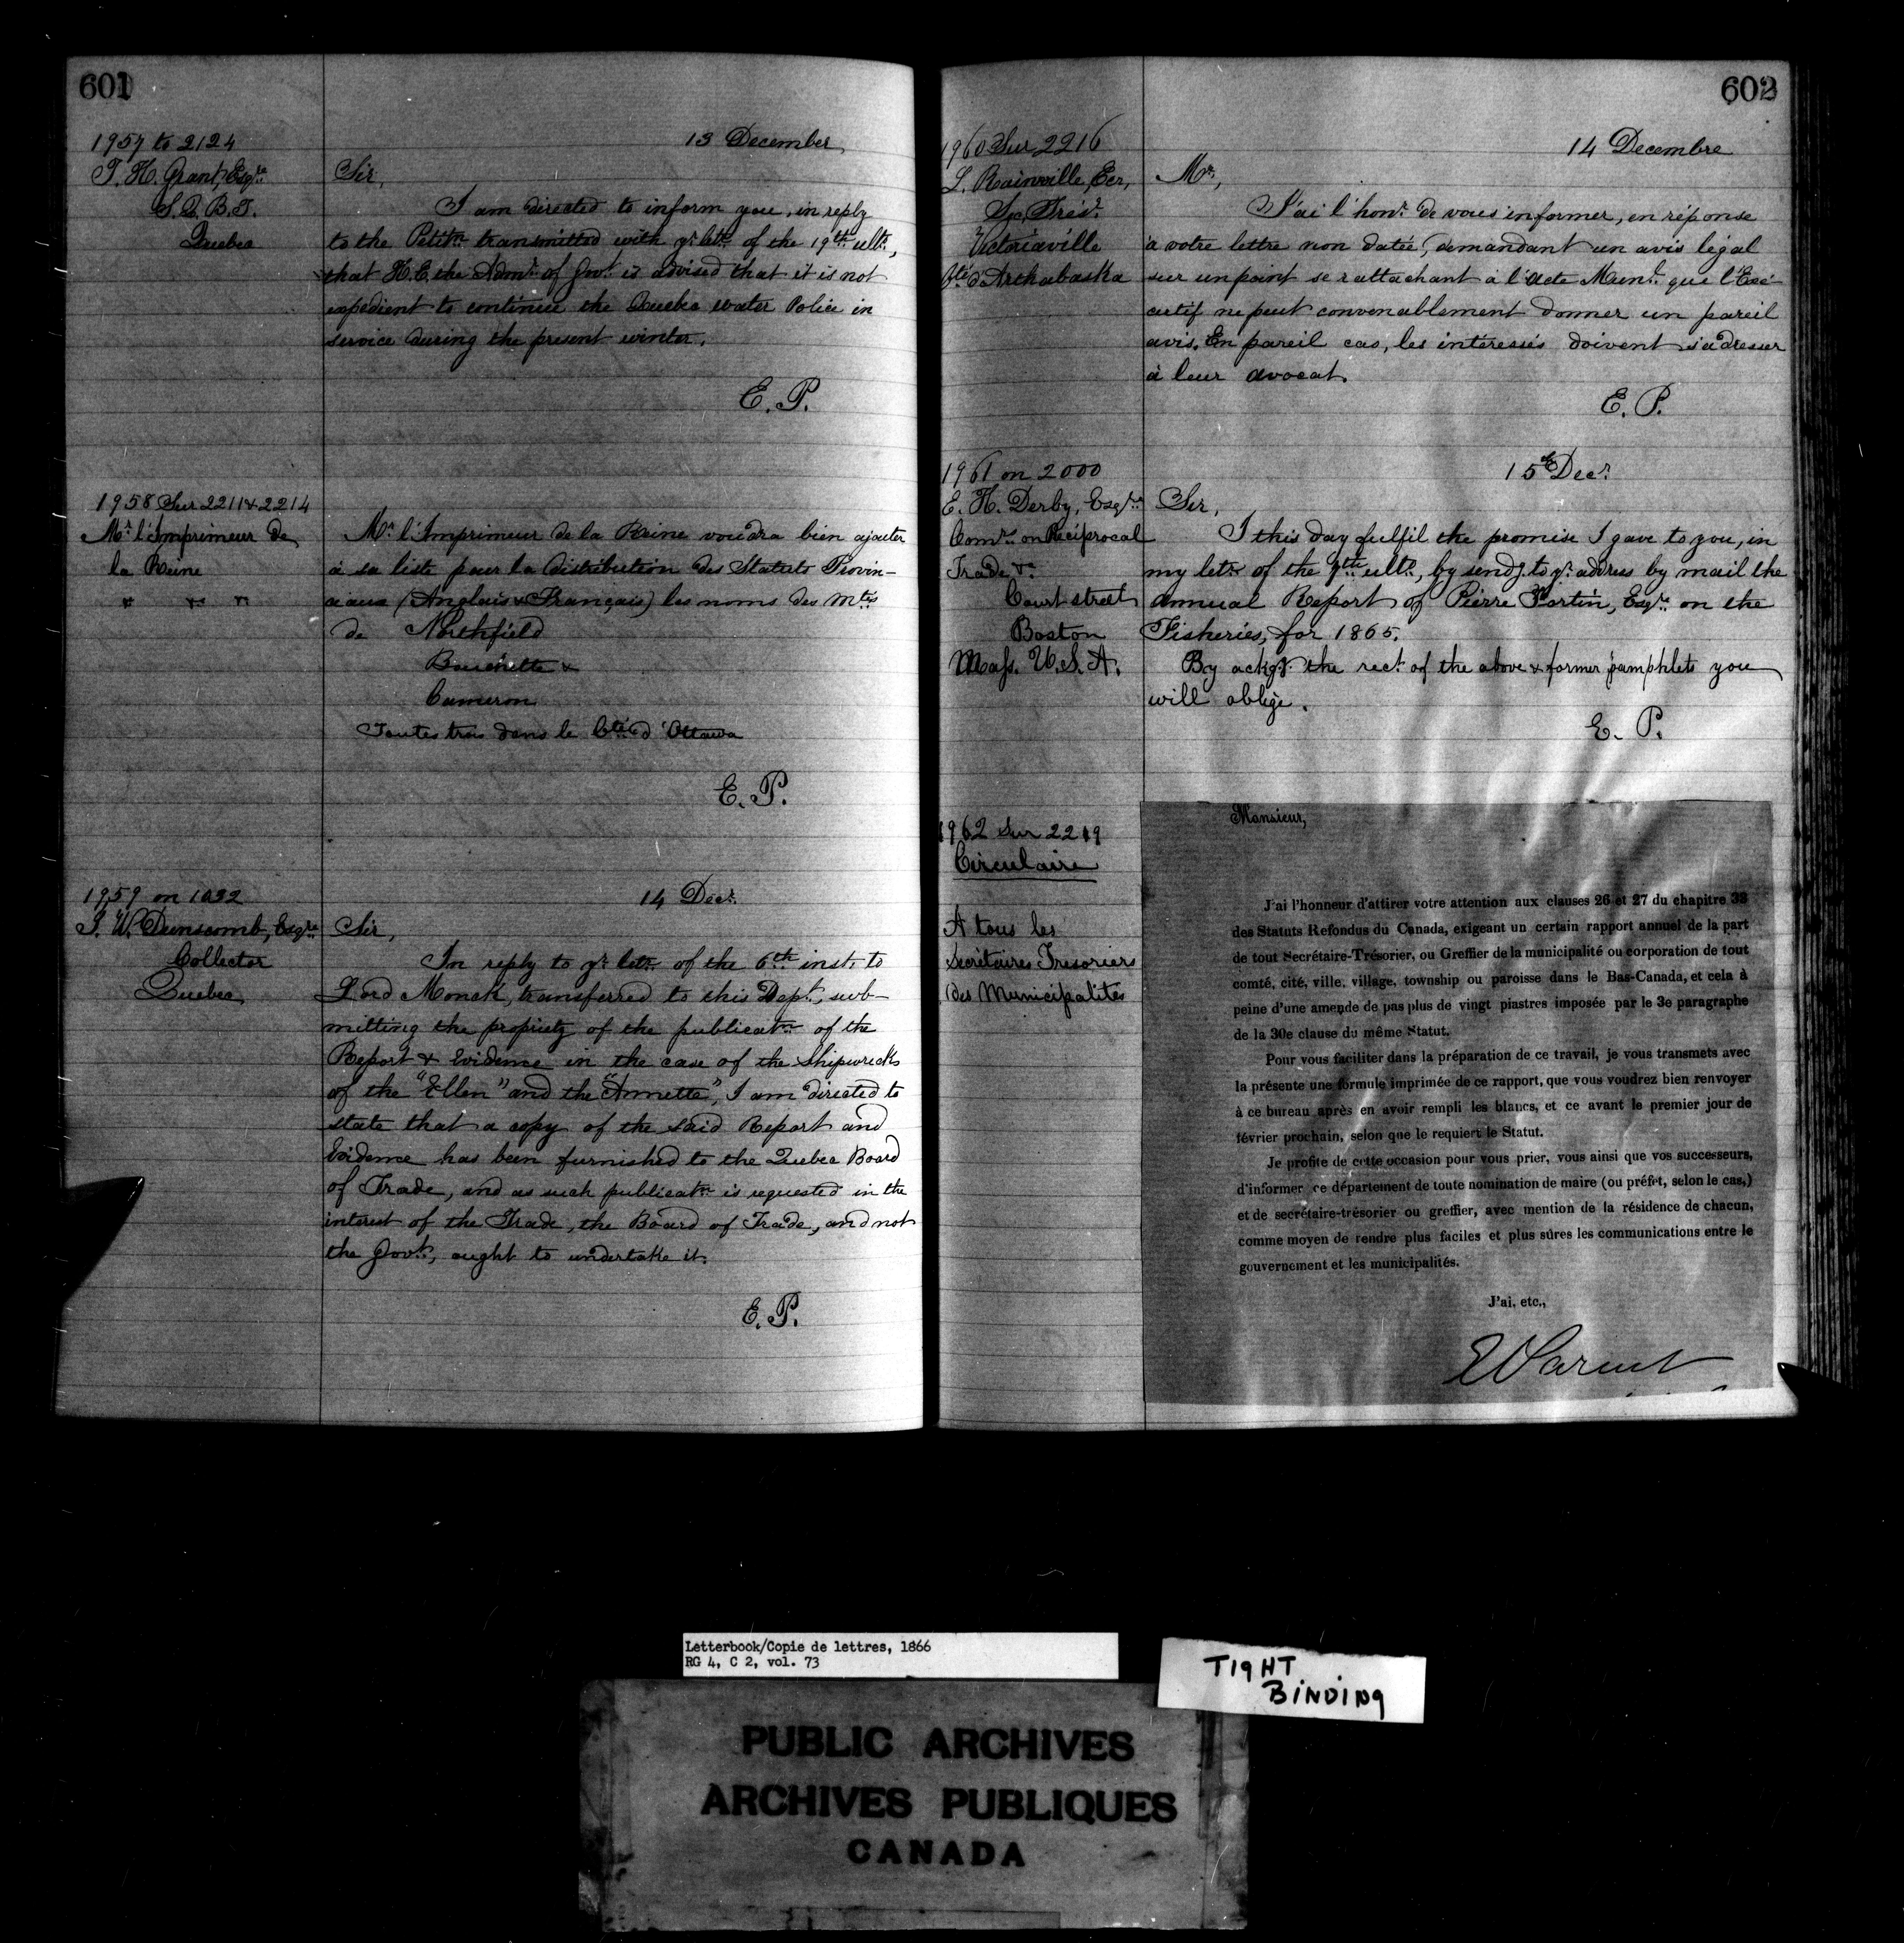 601
1957 to 2124
13 December
T. H. Grant, Esqre
S. Q. B. T.
Quebec
Sir,
I am directed to inform you, in reply
to the Petitn transmitted with yr letr of the 19th ulto,
that H. E. the Admr of Govt is advised that it is not
expedient to continue the Quebec water Police in
service during the present winter.
E. P.
1958 Sur 2211 & 2214
Mr l'Imprimeur de
la Reine
" " "
Mr l'Imprimeur de la Reine voudra bien ajouter
à sa liste pour la distribution des Statuts Provin-
ciaux (Anglais & Français) les noms des Mtés
de Northfield
Bouchette &
Cameron
Toutes trois dans le Cté d'Ottawa
E. P.
1959 on 1032
14 Decr
J. W. Dunscomb, Esqre
Collector
Quebec
Sir,
In reply to yr letr of the 6th inst. to
Lord Monck, transferred to this Dept, sub-
mitting the propriety of the publicatn of the
Report & Evidence in the case of the Shipwrecks
of the "Ellen" and the "Annetta", I am directed to
state that a copy of the said Report and
Evidence has been furnished to the Quebec Board
of Trade, and as such publicatn is requested in the
interest of the Trade, the Board of Trade, and not
the Govt, ought to undertake it.
E. P.
602
1960 Sur 2216
14 Decembre
L. Rainville, Ecr,
Sec. Trésr
Victoriaville
Cté d'Arthabaska
Mr,
J'ai l'honr de vous informer, en réponse
à votre lettre non datée, demandant un avis légal
sur un point se rattachant à l'acte Munl que l'Exé-
cutif ne peut convenablement donner un pareil
avis. En pareil cas, les intéressés doivent s'adresser
à leur avocat.
E. P.
1961 on 2000
15th Decr
E. H. Derby, Esqre
Comr on Reciprocal
Trade &c
Court street
Boston
Mass. U. S. A.
Sir,
I this day fulfil the promise I gave to you, in
my letr of the 7th ulto, by sendg to yr address by mail the
Annual Report of Pierre Fortin, Esqre on the
Fisheries, for 1865.
By ackgg the rect of the above & former pamphlets you
will oblige.
E. P.
1962 Sur 2219
Circulaire
A tous les
Secrétaires Tresoriers
des Municipalités
Monsieur,
J'ai l'honneur d'attirer votre attention aux clauses 26 et 27 du chapitre 33
des Statuts Refondus du Canada, exigeant un certain rapport annuel de la part
de tout Secrétaire-Trésorier, ou Greffier de la municipalité ou corporation de tout
comté, cité, ville, village, township ou paroisse dans le Bas-Canada, et cela à
peine d'une amende de pas plus de vingt piastres imposée par le 3e paragraphe
de la 30e clause du même Statut.
Pour vous faciliter dans la préparation de ce travail, je vous transmets avec
la présente une formule imprimée de ce rapport, que vous voudrez bien renvoyer
à ce bureau après en avoir rempli les blancs, et ce avant le premier jour de
février prochain, selon que le requiert le Statut.
Je profite de cette occasion pour vous prier, vous ainsi que vos successeurs,
d'informer ce département de toute nomination de maire (ou préfet, selon le cas,)
et de secrétaire-trésorier ou greffier, avec mention de la résidence de chacun,
comme moyen de rendre plus faciles et plus sûres les communications entre le
gouvernement et les municipalités.
J'ai, etc.,
E Parent
Letterbook/Copie de lettres, 1866
RG 4, C 2, vol. 73
TIGHT
BINDING
PUBLIC ARCHIVES
ARCHIVES PUBLIQUES
CANADA